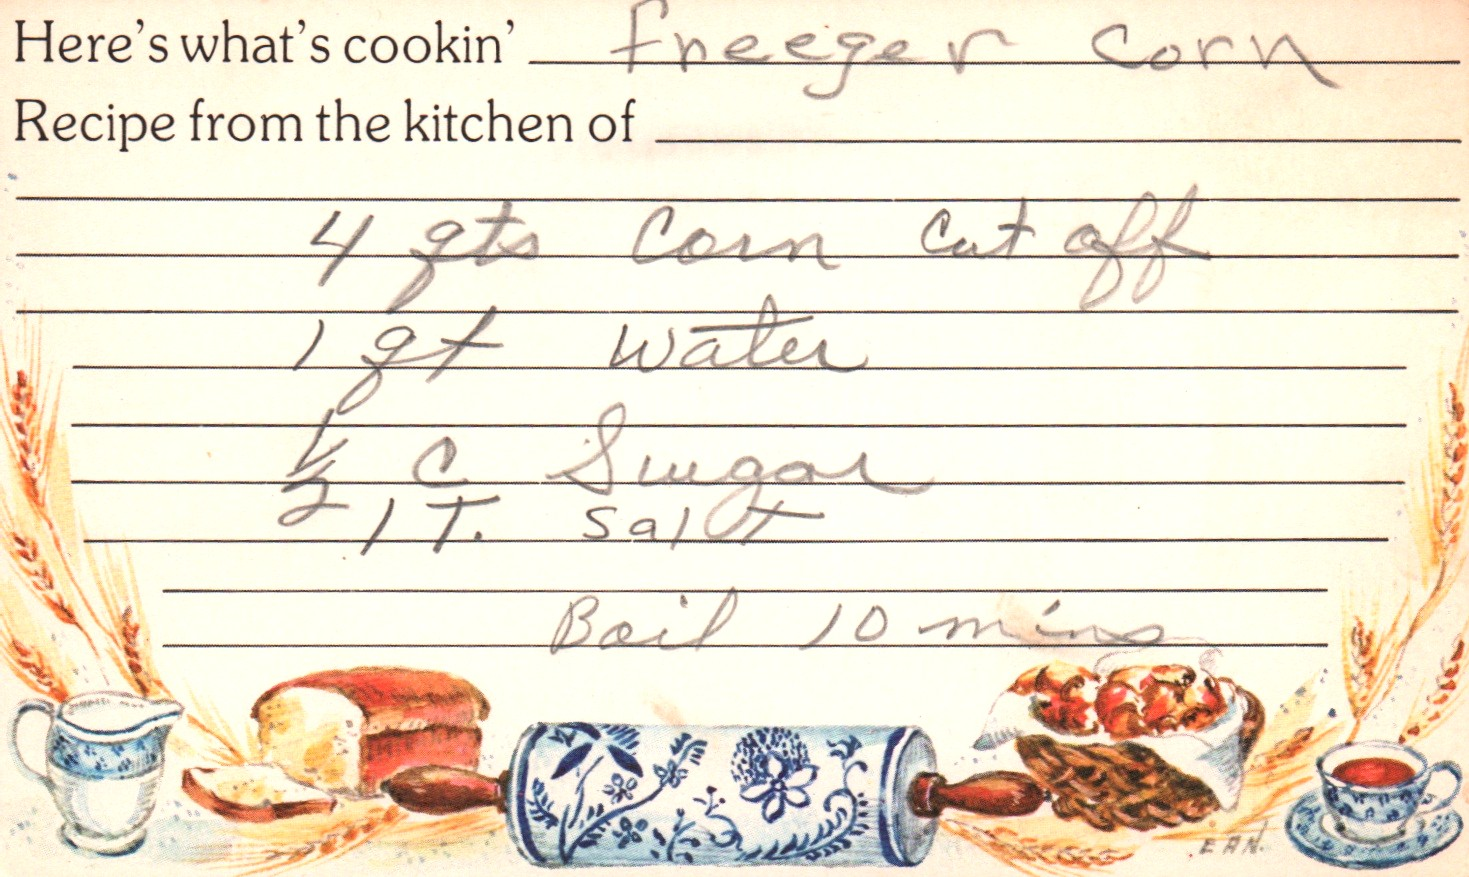 Here's what's cookin' Freezer Corn
Recipe from the kitchen of
4 qts Corn Cut off
1 qt Water
1/2 C Sugar
1 T. Salt
Boil 10 mins
EAN.